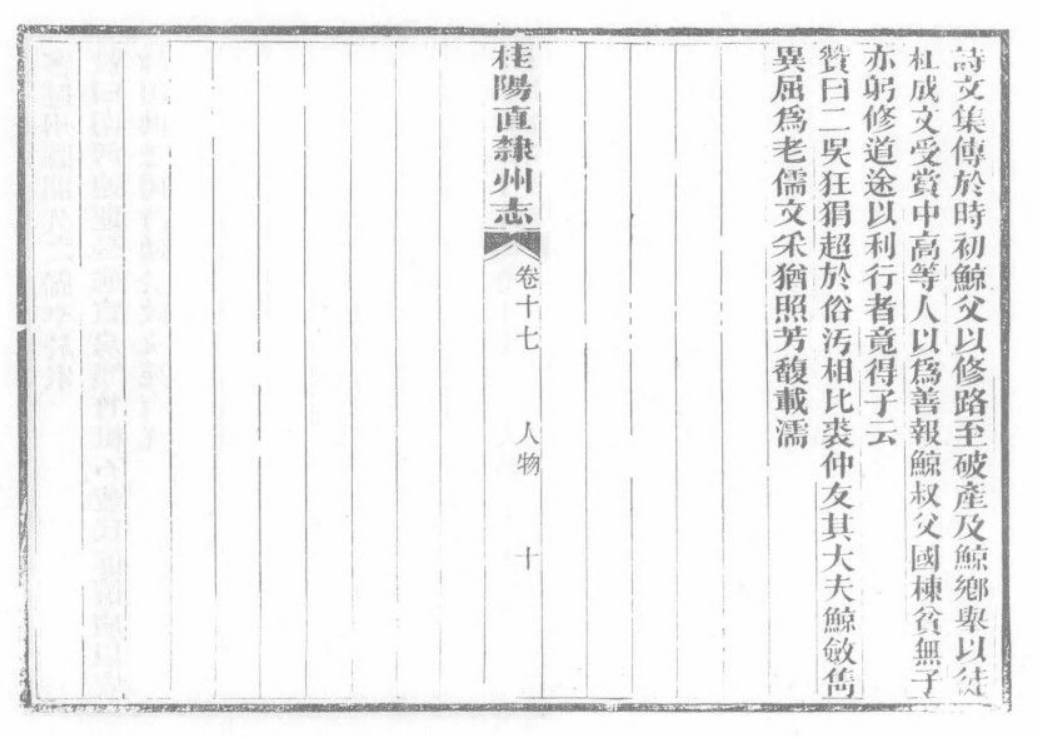 詩文集傳於時初鯨父以修路至破產及鯨鄉舉以徒
杠成文受賞中高等人以爲善報鯨叔父國棟貧無子
亦躬修道途以利行者竟得子云
贊曰二吳狂狷超於俗汚相比裘仲友其大夫鯨斂儁
異屈爲老儒文采猶照芳馥載濡
桂陽直隸州志
卷十七
人物
十